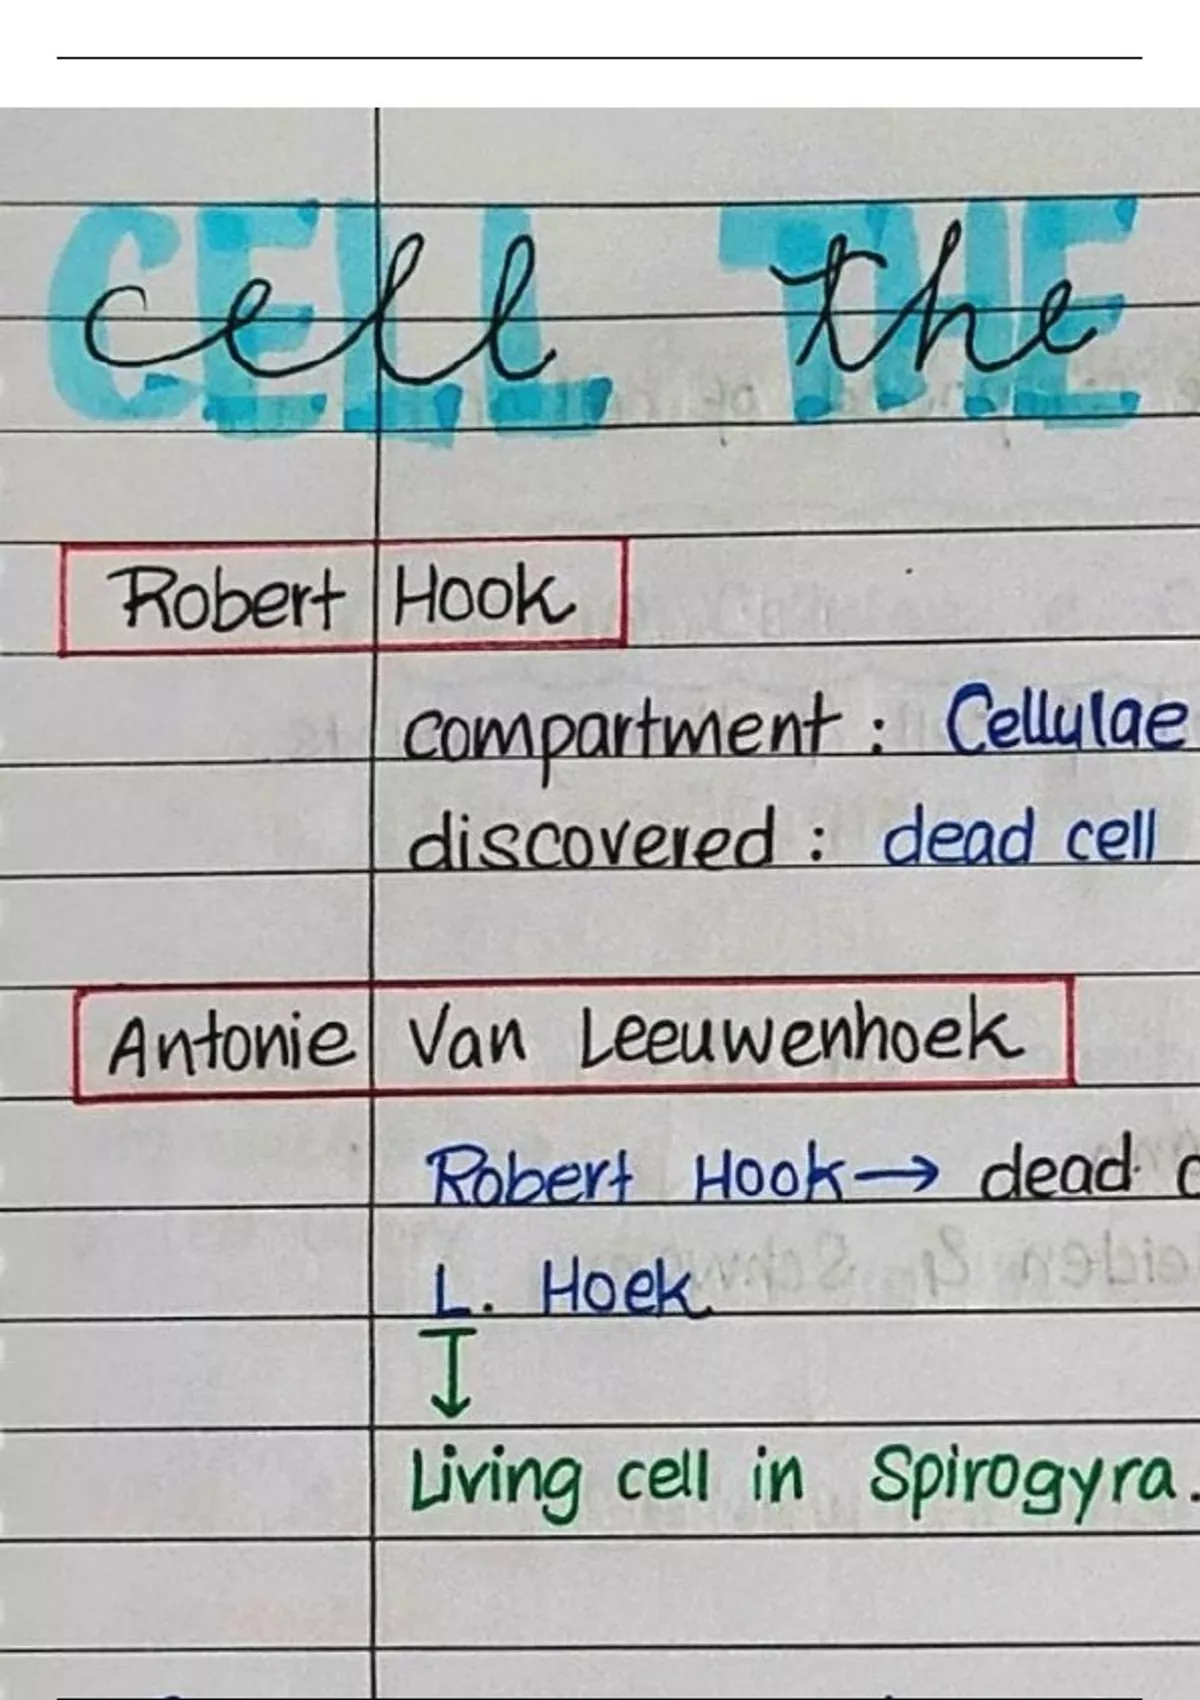 CELL THE
cell the
Robert Hook
compartment : Cellulae
discovered : dead cell
Antonie Van Leeuwenhoek
Robert Hook → dead
L. Hoek
↓
Living cell in Spirogyra.